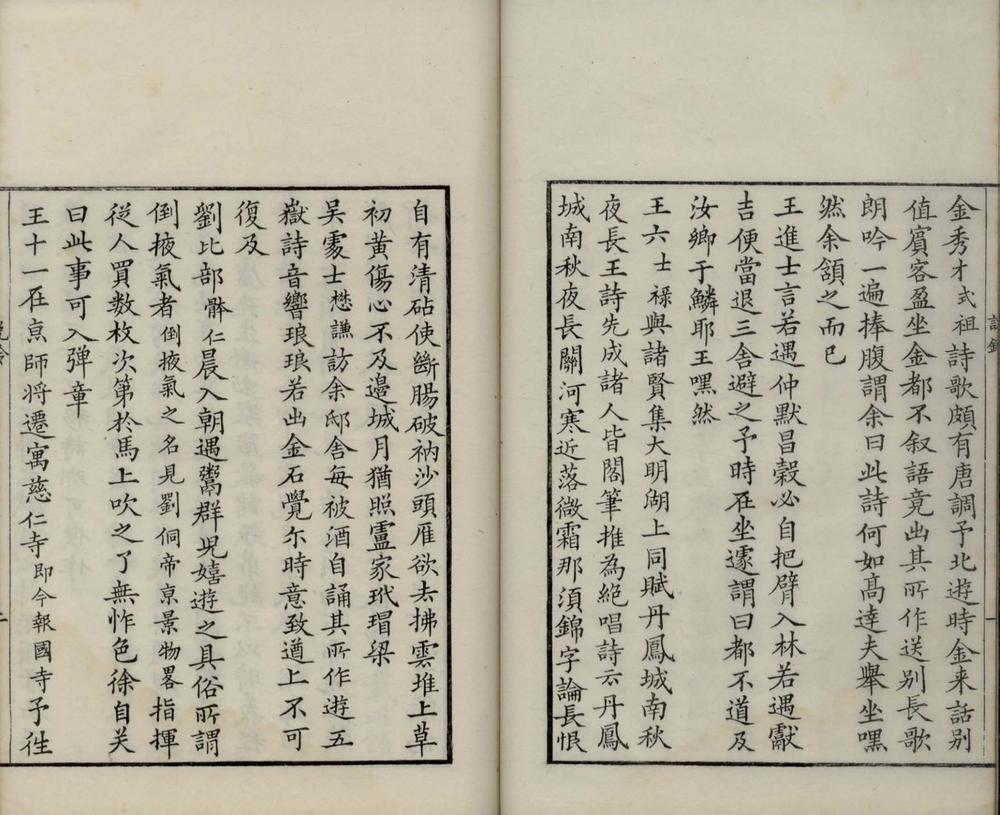 金秀才式祖詩歌頗有唐調予北遊時金来話别
值賓客盈坐金都不叙語竟出其所作送别長歌
朗吟一遍捧腹謂余曰此詩何如髙達夫舉坐嘿
然余頷之而已
王進士言若遇仲默昌榖必自把臂入林若遇獻
吉便當退三舍避之予時在坐遽謂曰都不道及
汝鄉于鱗耶王嘿然
王六士禄與諸賢集大明湖上同賦丹鳳城南秋
夜長王詩先成諸人皆閣筆推為絕唱詩云丹鳳
城南秋夜長關河寒近落微霜那須錦字論長恨
自有清砧使斷腸破衲沙頭雁欲去拂雲堆上草
初黃傷心不及邉城月猶照盧家玳瑁梁
吳處士懋謙訪余邸舍每被酒自誦其所作遊五
嶽詩音響琅琅若出金石覺尓時意致遒上不可
復及
劉比部體仁晨入朝遇鬻群兒嬉遊之具俗所謂
倒掖氣者倒掖氣之名見劉侗帝亰景物畧指揮
從人買數枚次第扵馬上吹之了無怍色徐自笑
曰此事可入弾章
王十一在亰師将遷寓慈仁寺即今報國寺予徃